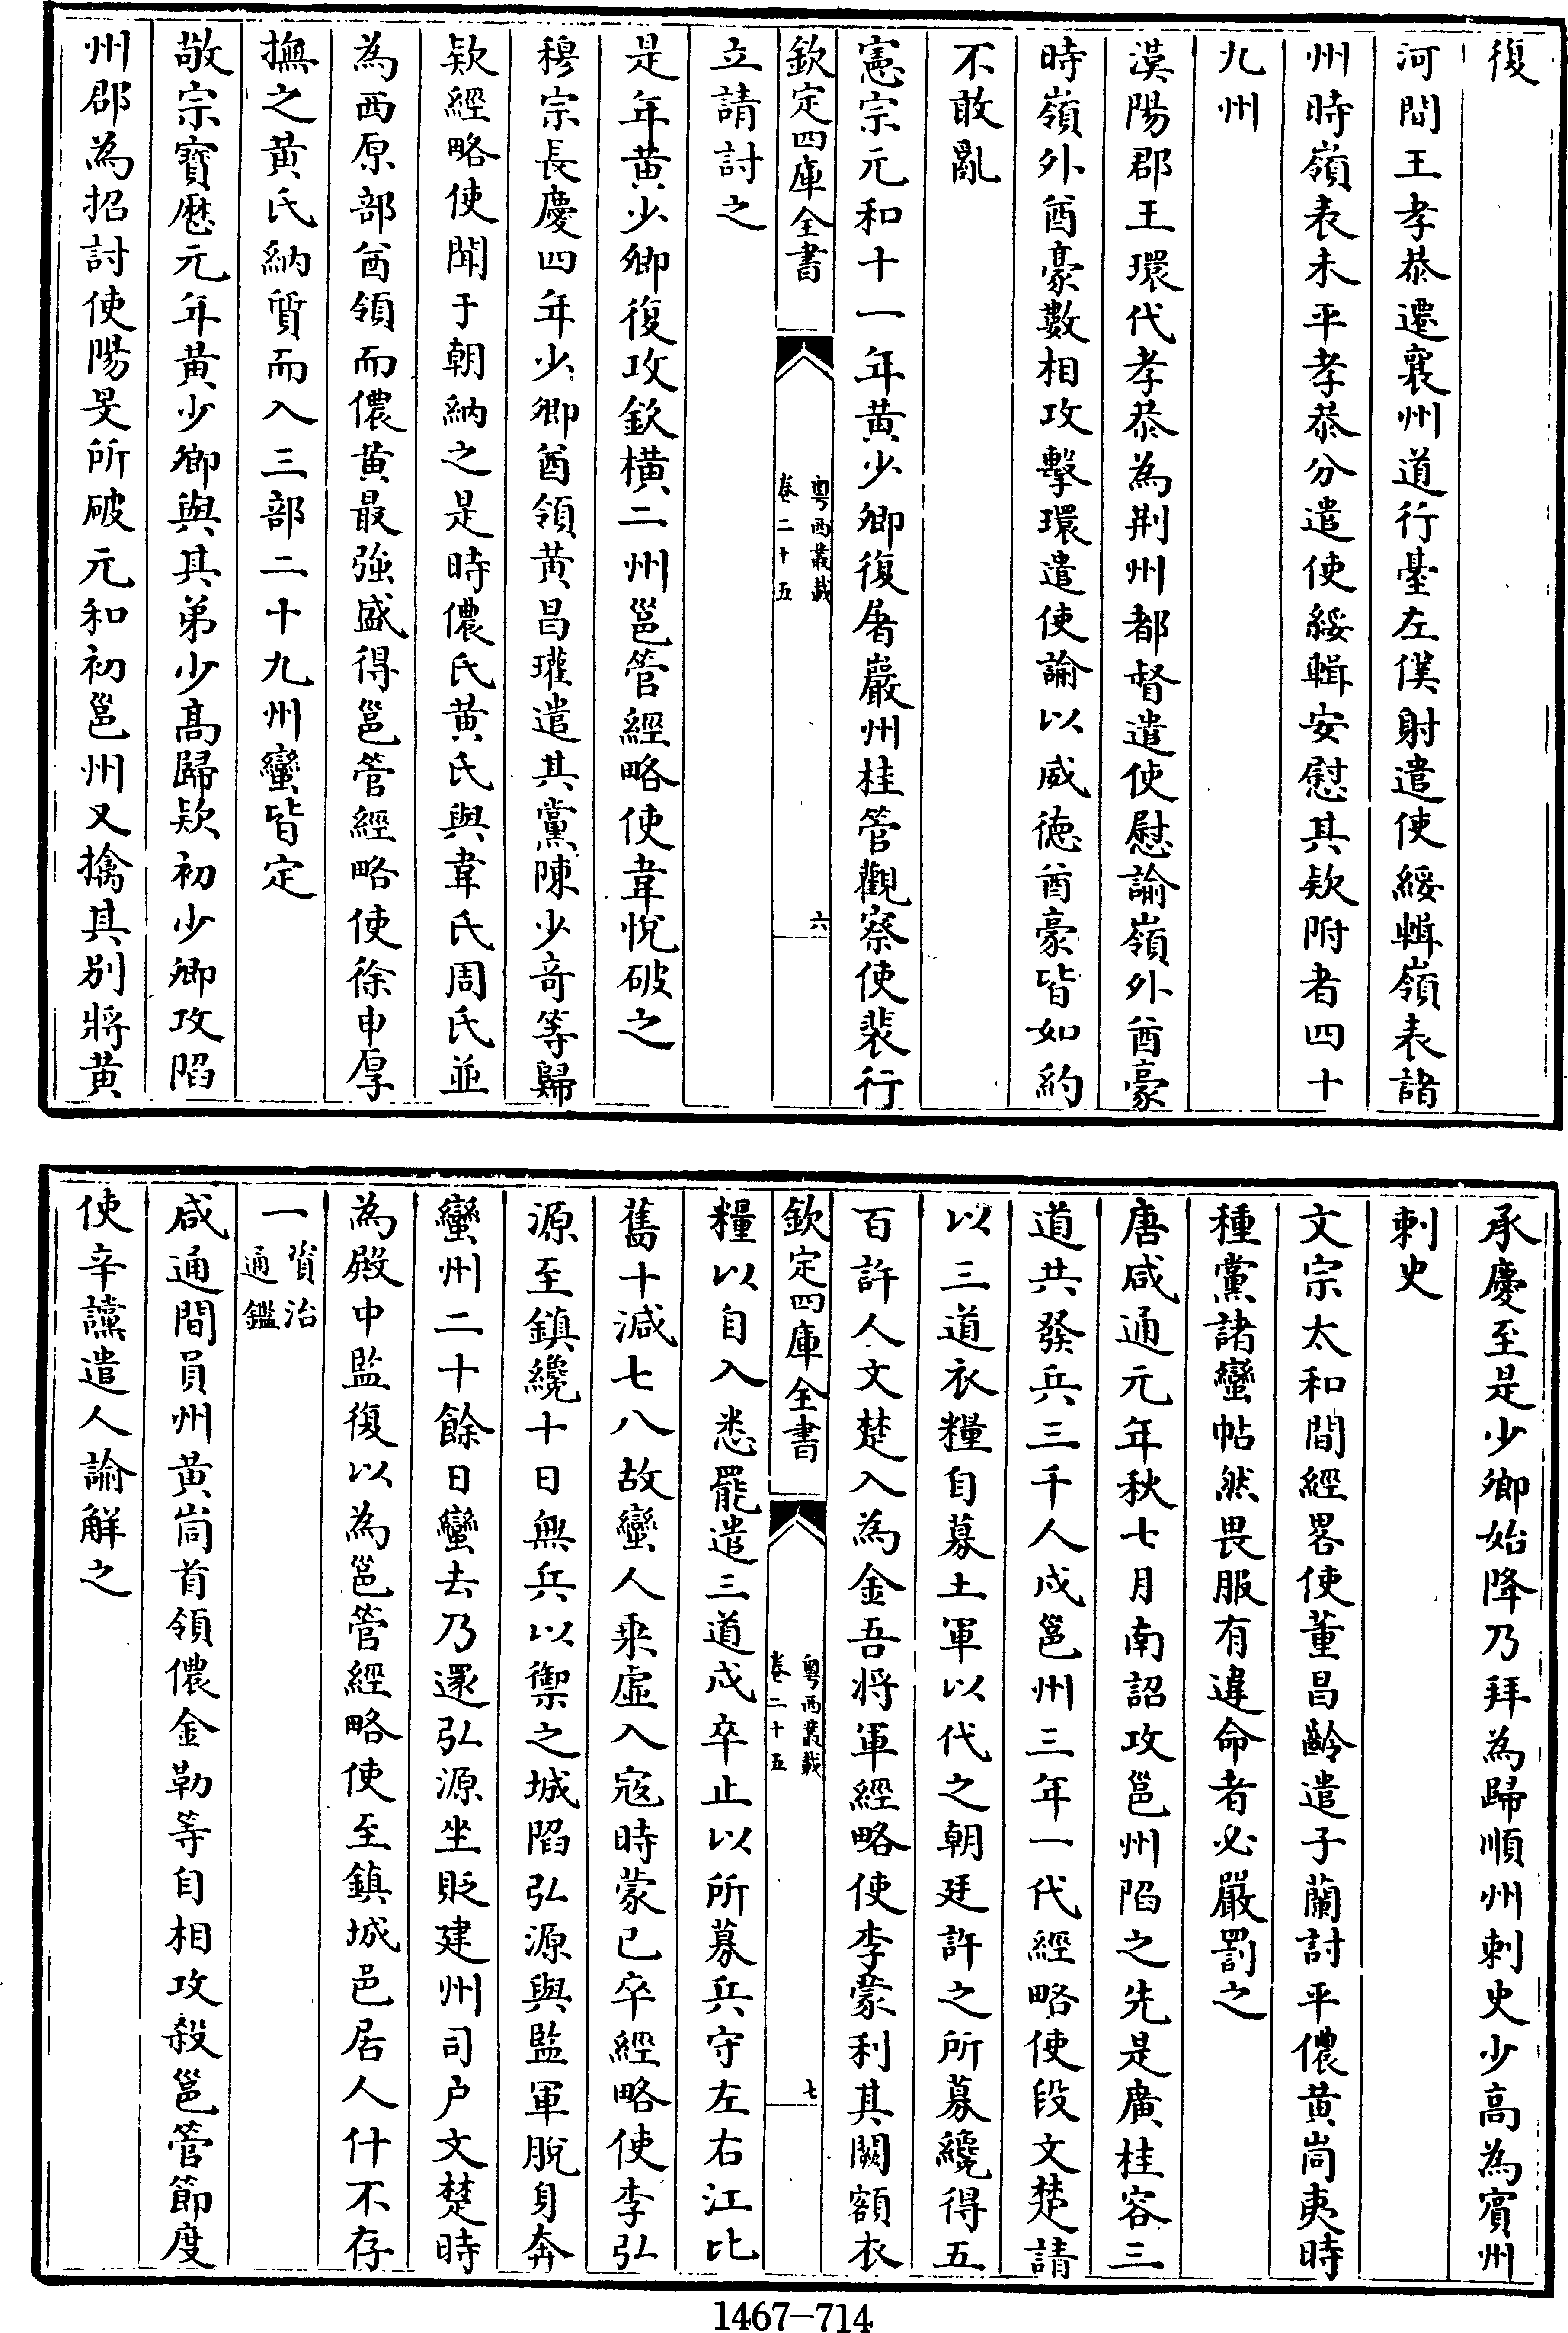 復
河間王孝恭還襄州道行臺左僕射遣使綏輯嶺表諸
州時嶺表未平孝恭分遣使綏輯安慰其欵附者四十
九州
漢陽郡王環代孝恭為荆州都督遣使慰諭嶺外酋豪
時嶺外酋豪數相攻擊環遣使諭以威徳酋豪皆如約
不敢亂
憲宗元和十一年黄少卿復屠巖州桂管觀察使裴行
欽定四庫全書
粤西叢載
卷二十五
六
立請討之
是年黄少卿復攻欽橫二州邕管經略使韋悅破之
穆宗長慶四年少卿酋領黄昌瓘遣其黨陳少竒等歸
欵經略使聞于朝納之是時儂氏黄氏與韋氏周氏並
為西原部酋領而儂黄最強盛得邕管經略使徐申厚
撫之黄氏納質而入三部二十九州蠻皆定
敬宗寳厯元年黄少卿與其弟少髙歸欵初少卿攻陷
州郡為招討使陽旻所破元和初邕州又擒其别將黄
承慶至是少卿始降乃拜為歸順州刺史少高為賓州
刺史
文宗太和間經畧使董昌齡遣子蘭討平儂黄峝夷時
種黨諸蠻帖然畏服有違命者必嚴罰之
唐咸通元年秋七月南詔攻邕州陷之先是廣桂容三
道共發兵三千人戍邕州三年一代經略使段文楚請
以三道衣糧自募土軍以代之朝廷許之所募纔得五
百許人文楚入為金吾將軍經略使李蒙利其闕額衣
欽定四庫全書
粤西叢載
卷二十五
七
糧以自入悉罷遣三道戍卒止以所募兵守左右江比
舊十減七八故蠻人乘虛入寇時蒙已卒經略使李弘
源至鎮纔十日無兵以禦之城陷弘源與監軍脫身奔
蠻州二十餘日蠻去乃還弘源坐貶建州司户文楚時
為殿中監復以為邕管經略使至鎮城邑居人什不存
一資治通鑑
咸通間員州黄峝首領儂金勒等自相攻殺邕管節度
使辛讜遣人諭解之
1467-714